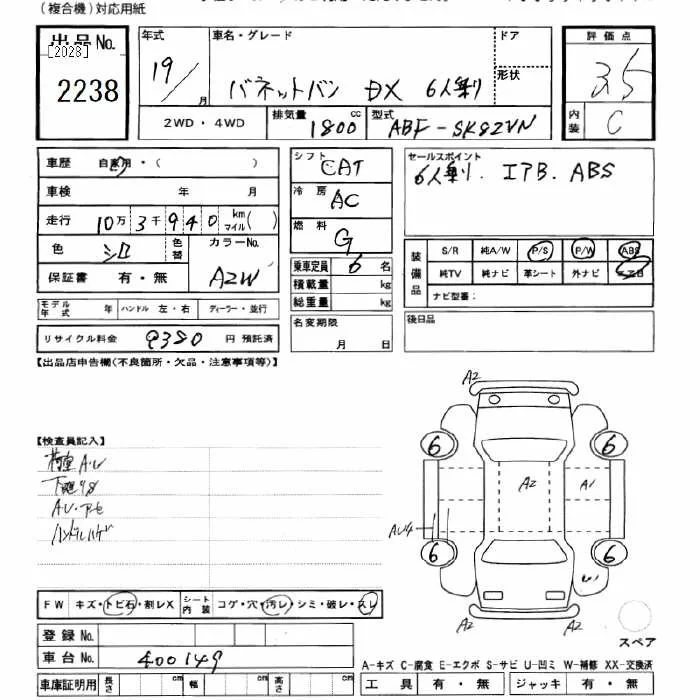 （複合機）対応用紙
出品No.
[2028]
2238
年式
19／
月
車名・グレード
バネットバン DX 6人乗り
ドア
形状
評価点
3.5
内装
C
2WD・4WD
排気量 1800 cc
型式 ABF-SK82VN
車歴 自家用・（ ）
車検 年 月
走行 10万3千940 km マイル（ ）
色 シロ 色替
カラーNo. A2W
保証書 有・無
モデル年式 年 ハンドル 左・右 ディーラー・並行
リサイクル料金 9380 円 預託済
シフト CAT
冷房 AC
燃料 G
乗車定員 6 名
積載量 kg
総重量 kg
名変期限
月 日
セールスポイント
6人乗り. エアB. ABS
装備品
S/R 純A/W P/S P/W ABS
純TV 純ナビ 革シート 外ナビ
ナビ型番：
後日品
【出品店申告欄（不良箇所・欠品・注意事項等）】
【検査員記入】
荷室 A.U
下廻りS
ハンドルハゲ
A2
6 6
A2 A1
AU4
6 6
A2 A2
スペア
FW キズ・トビ石・割レX シート内装 コゲ・穴・汚レ・シミ・破レ・スレ
登録No.
車台No. 400149
車庫証明用 長さ cm 幅 cm 高さ cm
A-キズ C-腐食 E-エクボ S-サビ U-凹ミ W-補修 XX-交換済
工具 有・無 ジャッキ 有・無